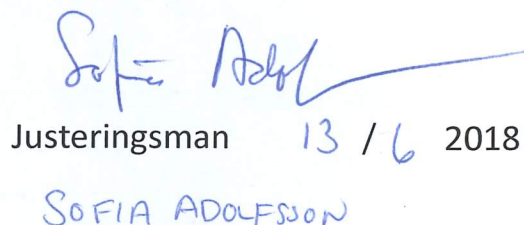 Sofia Adolf
Justeringsman 13 / 6 2018
SOFIA ADOLFSSON